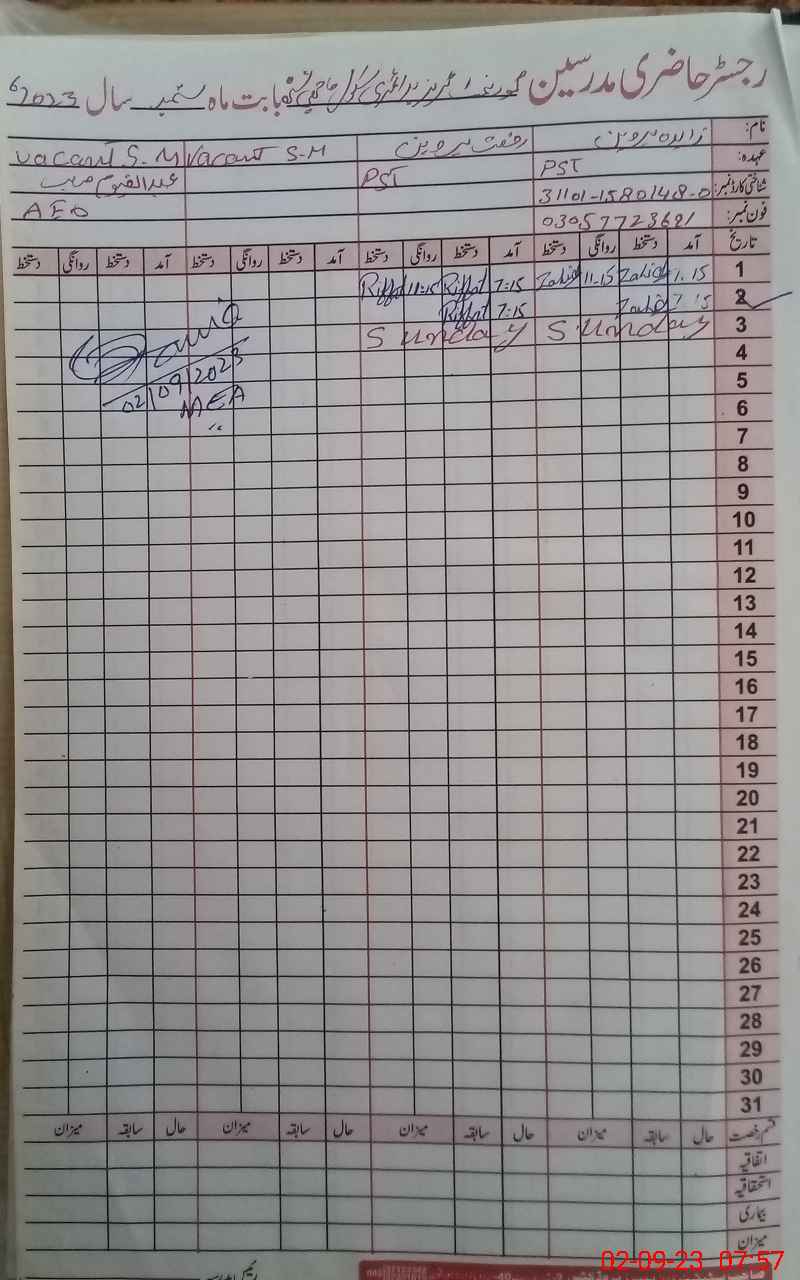 رجسٹر حاضری مدرسین گورنمنٹ گرلز پرائمری سکول بابت ماہ ستمبر سال 2023
نام: زاہدہ پروین رفعت پروین Vacant S-M Vacant S-M
عہدہ: PST PST عبدالقیوم صاحب
شناختی کارڈ نمبر: 31101-1580148-0 AEO
فون نمبر: 03057723621
تاریخ آمد دستخط روانگی دستخط آمد دستخط روانگی دستخط آمد دستخط روانگی دستخط آمد دستخط روانگی دستخط
1 7:15 Zahida 11-15 Zahida 7:15 Riffat 11:15 Riffat
2 7:15 Zahida 7:15 Riffat
3 Sunday Sunday
4
02/09/2023
5
MEA
6
7
8
9
10
11
12
13
14
15
16
17
18
19
20
21
22
23
24
25
26
27
28
29
30
31
قسم رخصت حال سابقہ میزان حال سابقہ میزان حال سابقہ میزان حال سابقہ میزان
اتفاقیہ
استحقاقیہ
بیماری
میزان
02-09-23 07:57